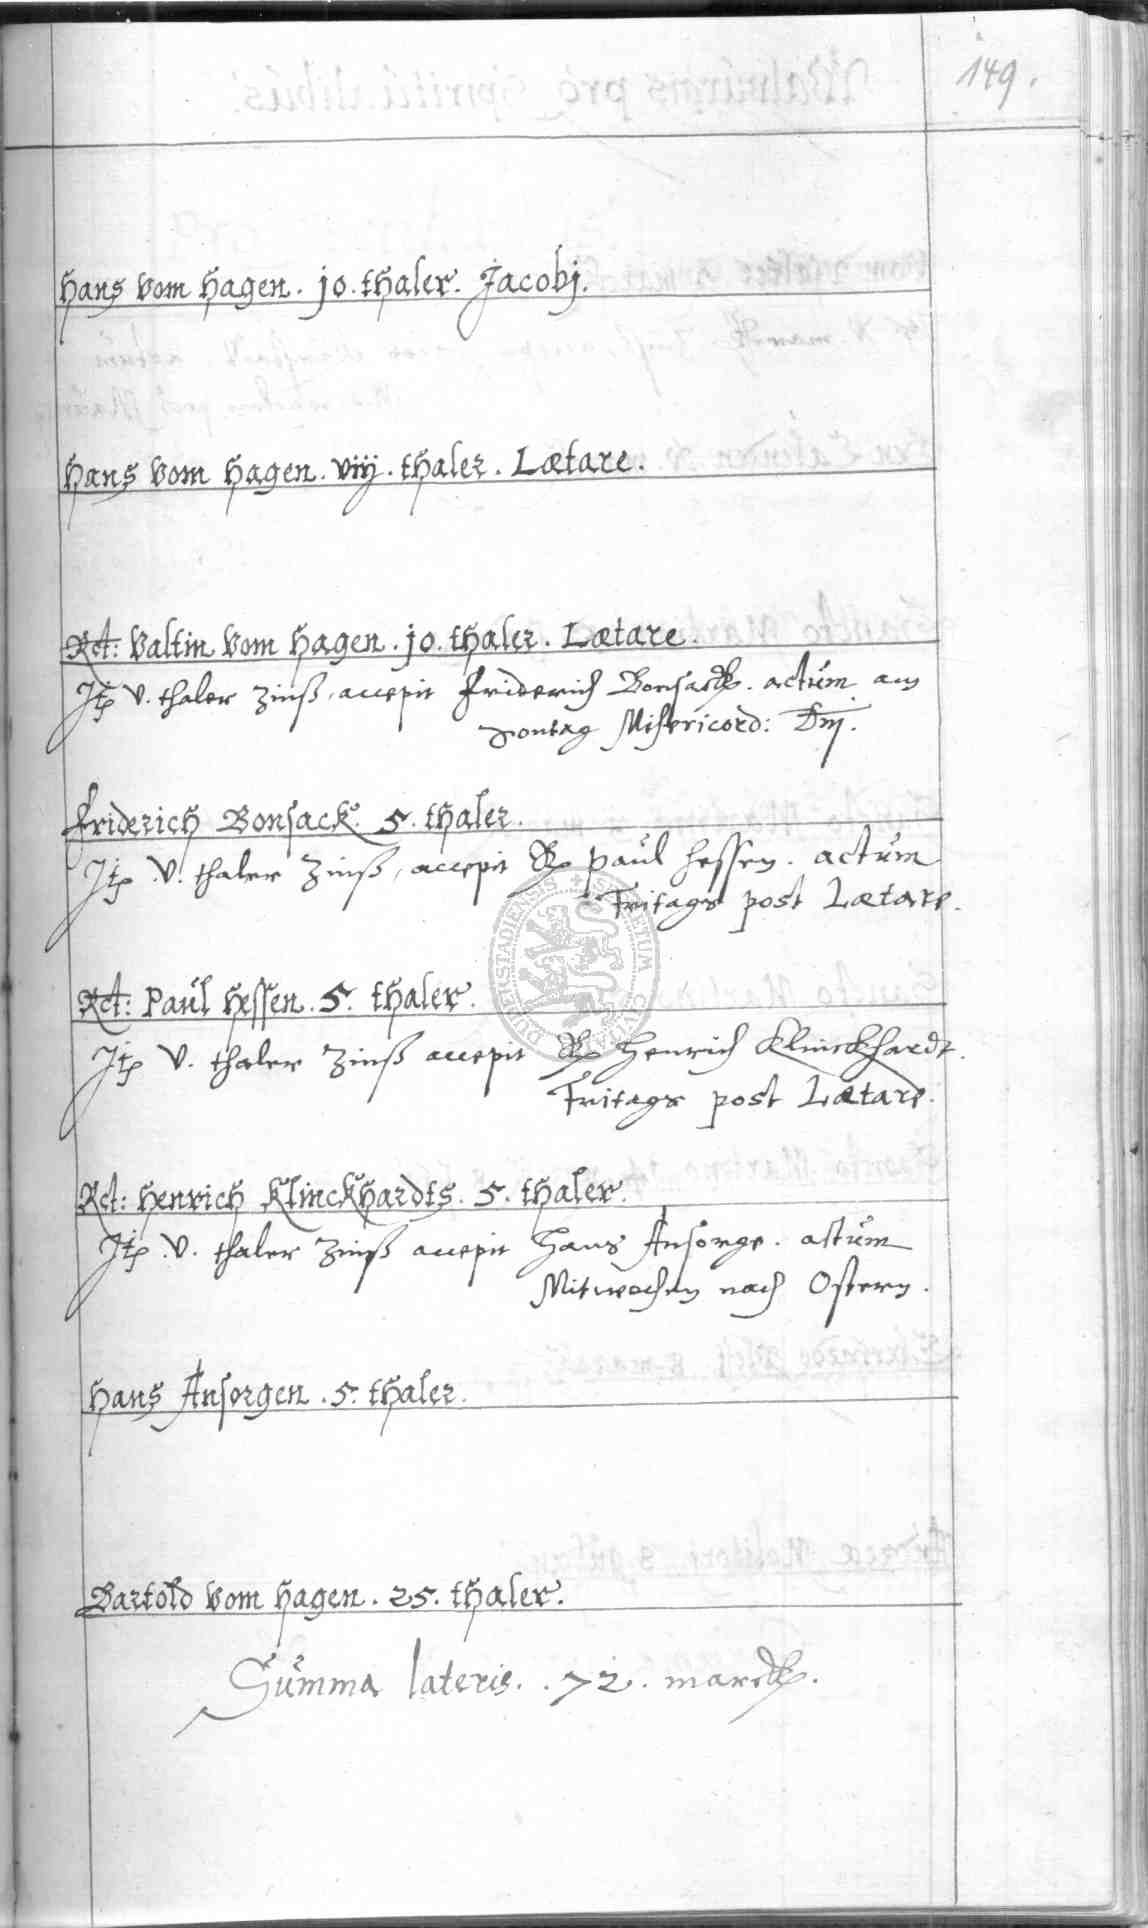 149.
Hans vom Hagen. jo. thaler. Jacobj.
Hans vom Hagen. viij. thaler. Lætare.
Rct: Valtin vom Hagen. jo. thaler. Lætare.
Jtp v. thaler Zinß, accepit Friderich Bonsack. actum am
Sontag Misericord: Dnj.
Friderich Bonsack. 5. thaler.
Jtp .V. thaler Zinß, accepit Paul Hessen. actum
Fritags post Lætare.
Rct: Paul Hessen. 5. thaler.
Jtp V. thaler Zinß accepit Henrich Klinckhardt.
Fritags post Lætare.
Rct: Henrich Klinckhardts. 5. thaler.
Jtp .V. thaler Zinß accepit Hans Ansorge. actum
Mitwochen nach Ostern.
Hans Ansorgen. 5. thaler.
Bartold vom Hagen. 25. thaler.
Summa lateris. . 72. marck.
SECRETUM CIVITATIS DUDERSTADIENSIS